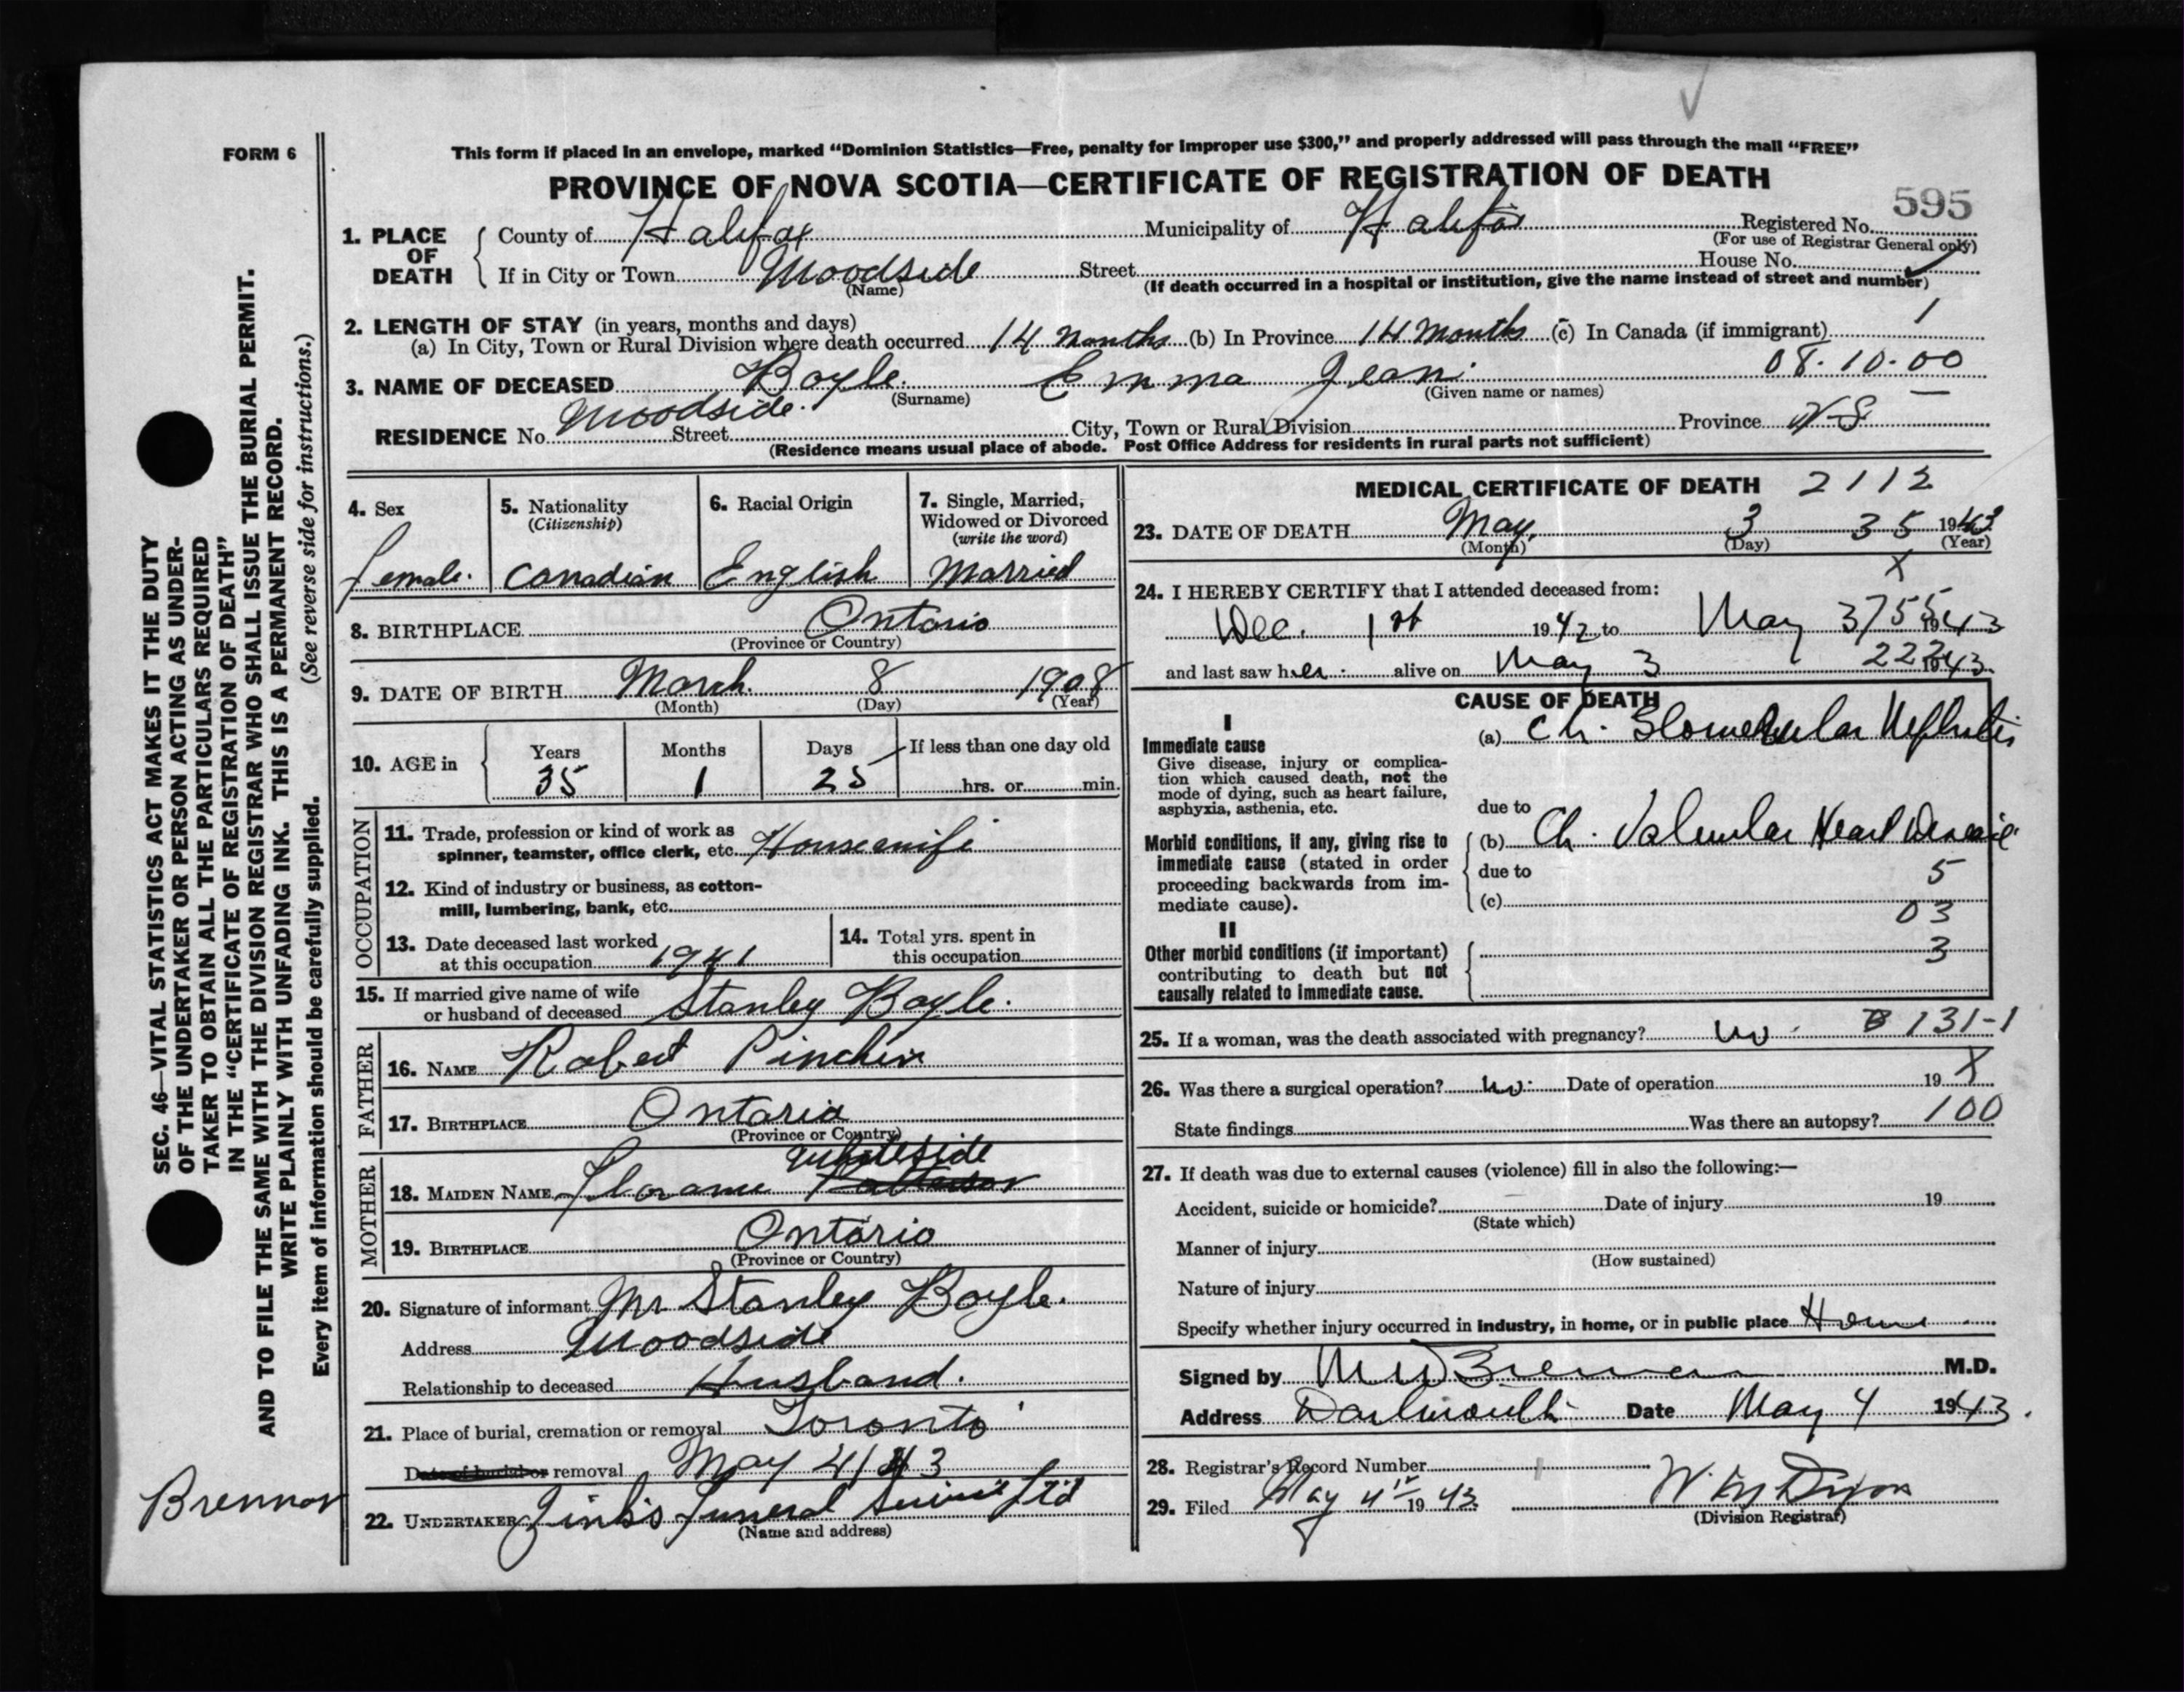 FORM 6
This form if placed in an envelope, marked "Dominion Statistics—Free, penalty for improper use $300," and properly addressed will pass through the mail "FREE"
PROVINCE OF NOVA SCOTIA—CERTIFICATE OF REGISTRATION OF DEATH
595
1. PLACE OF DEATH County of Halifax Municipality of Halifax Registered No.
(For use of Registrar General only)
If in City or Town Woodside Street House No.
(Name) (If death occurred in a hospital or institution, give the name instead of street and number)
2. LENGTH OF STAY (in years, months and days)
(a) In City, Town or Rural Division where death occurred 14 months (b) In Province 14 months (c) In Canada (if immigrant) 1
08.10.00
3. NAME OF DECEASED Boyle. Emma Jean.
(Surname) (Given name or names)
RESIDENCE No. Woodside. Street City, Town or Rural Division Province N-S
(Residence means usual place of abode. Post Office Address for residents in rural parts not sufficient)
4. Sex 5. Nationality 6. Racial Origin 7. Single, Married,
(Citizenship) Widowed or Divorced
(write the word)
Female. Canadian English Married
8. BIRTHPLACE Ontario
(Province or Country)
9. DATE OF BIRTH March. 8 1908
(Month) (Day) (Year)
10. AGE in Years Months Days If less than one day old
35 1 25 hrs. or min.
OCCUPATION
11. Trade, profession or kind of work as
spinner, teamster, office clerk, etc. Housewife
12. Kind of industry or business, as cotton-
mill, lumbering, bank, etc.
13. Date deceased last worked 14. Total yrs. spent in
at this occupation 1941 this occupation
15. If married give name of wife
or husband of deceased Stanley Boyle.
FATHER
16. NAME Robert Pinchin
17. BIRTHPLACE Ontario
(Province or Country)
MOTHER
Whiteside
18. MAIDEN NAME Florance
19. BIRTHPLACE Ontario
(Province or Country)
20. Signature of informant Mr Stanley Boyle.
Address Woodside
Relationship to deceased Husband.
21. Place of burial, cremation or removal Toronto
Date of burial or removal May 4/43
22. UNDERTAKER Zink's Funeral Service Ltd
(Name and address)
MEDICAL CERTIFICATE OF DEATH 2112
23. DATE OF DEATH May, 3 35 1943
(Month) (Day) (Year)
X
24. I HEREBY CERTIFY that I attended deceased from:
Dec. 1st 1942 to May 3 1943
and last saw her alive on May 3 1943
CAUSE OF DEATH
I
Immediate cause
Give disease, injury or complica-
tion which caused death, not the
mode of dying, such as heart failure,
asphyxia, asthenia, etc.
(a) Ch. Glomerular Nephritis
due to
Morbid conditions, if any, giving rise to
immediate cause (stated in order
proceeding backwards from im-
mediate cause).
(b) Ch. Valvular Heart Disease
due to 5
(c)
03
II
Other morbid conditions (if important)
contributing to death but not
causally related to immediate cause.
3
25. If a woman, was the death associated with pregnancy? no. B 131-1
26. Was there a surgical operation? no. Date of operation 19 X
State findings Was there an autopsy? 100
27. If death was due to external causes (violence) fill in also the following:—
Accident, suicide or homicide? Date of injury 19
(State which)
Manner of injury
(How sustained)
Nature of injury
Specify whether injury occurred in industry, in home, or in public place Home
Signed by M.D.
Address Dartmouth Date May 4 1943.
28. Registrar's Record Number
29. Filed May 4th 1943
(Division Registrar)
SEC. 46—VITAL STATISTICS ACT MAKES IT THE DUTY
OF THE UNDERTAKER OR PERSON ACTING AS UNDER-
TAKER TO OBTAIN ALL THE PARTICULARS REQUIRED
IN THE "CERTIFICATE OF REGISTRATION OF DEATH"
AND TO FILE THE SAME WITH THE DIVISION REGISTRAR WHO SHALL ISSUE THE BURIAL PERMIT.
WRITE PLAINLY WITH UNFADING INK. THIS IS A PERMANENT RECORD.
Every item of information should be carefully supplied. (See reverse side for instructions.)
Brennan